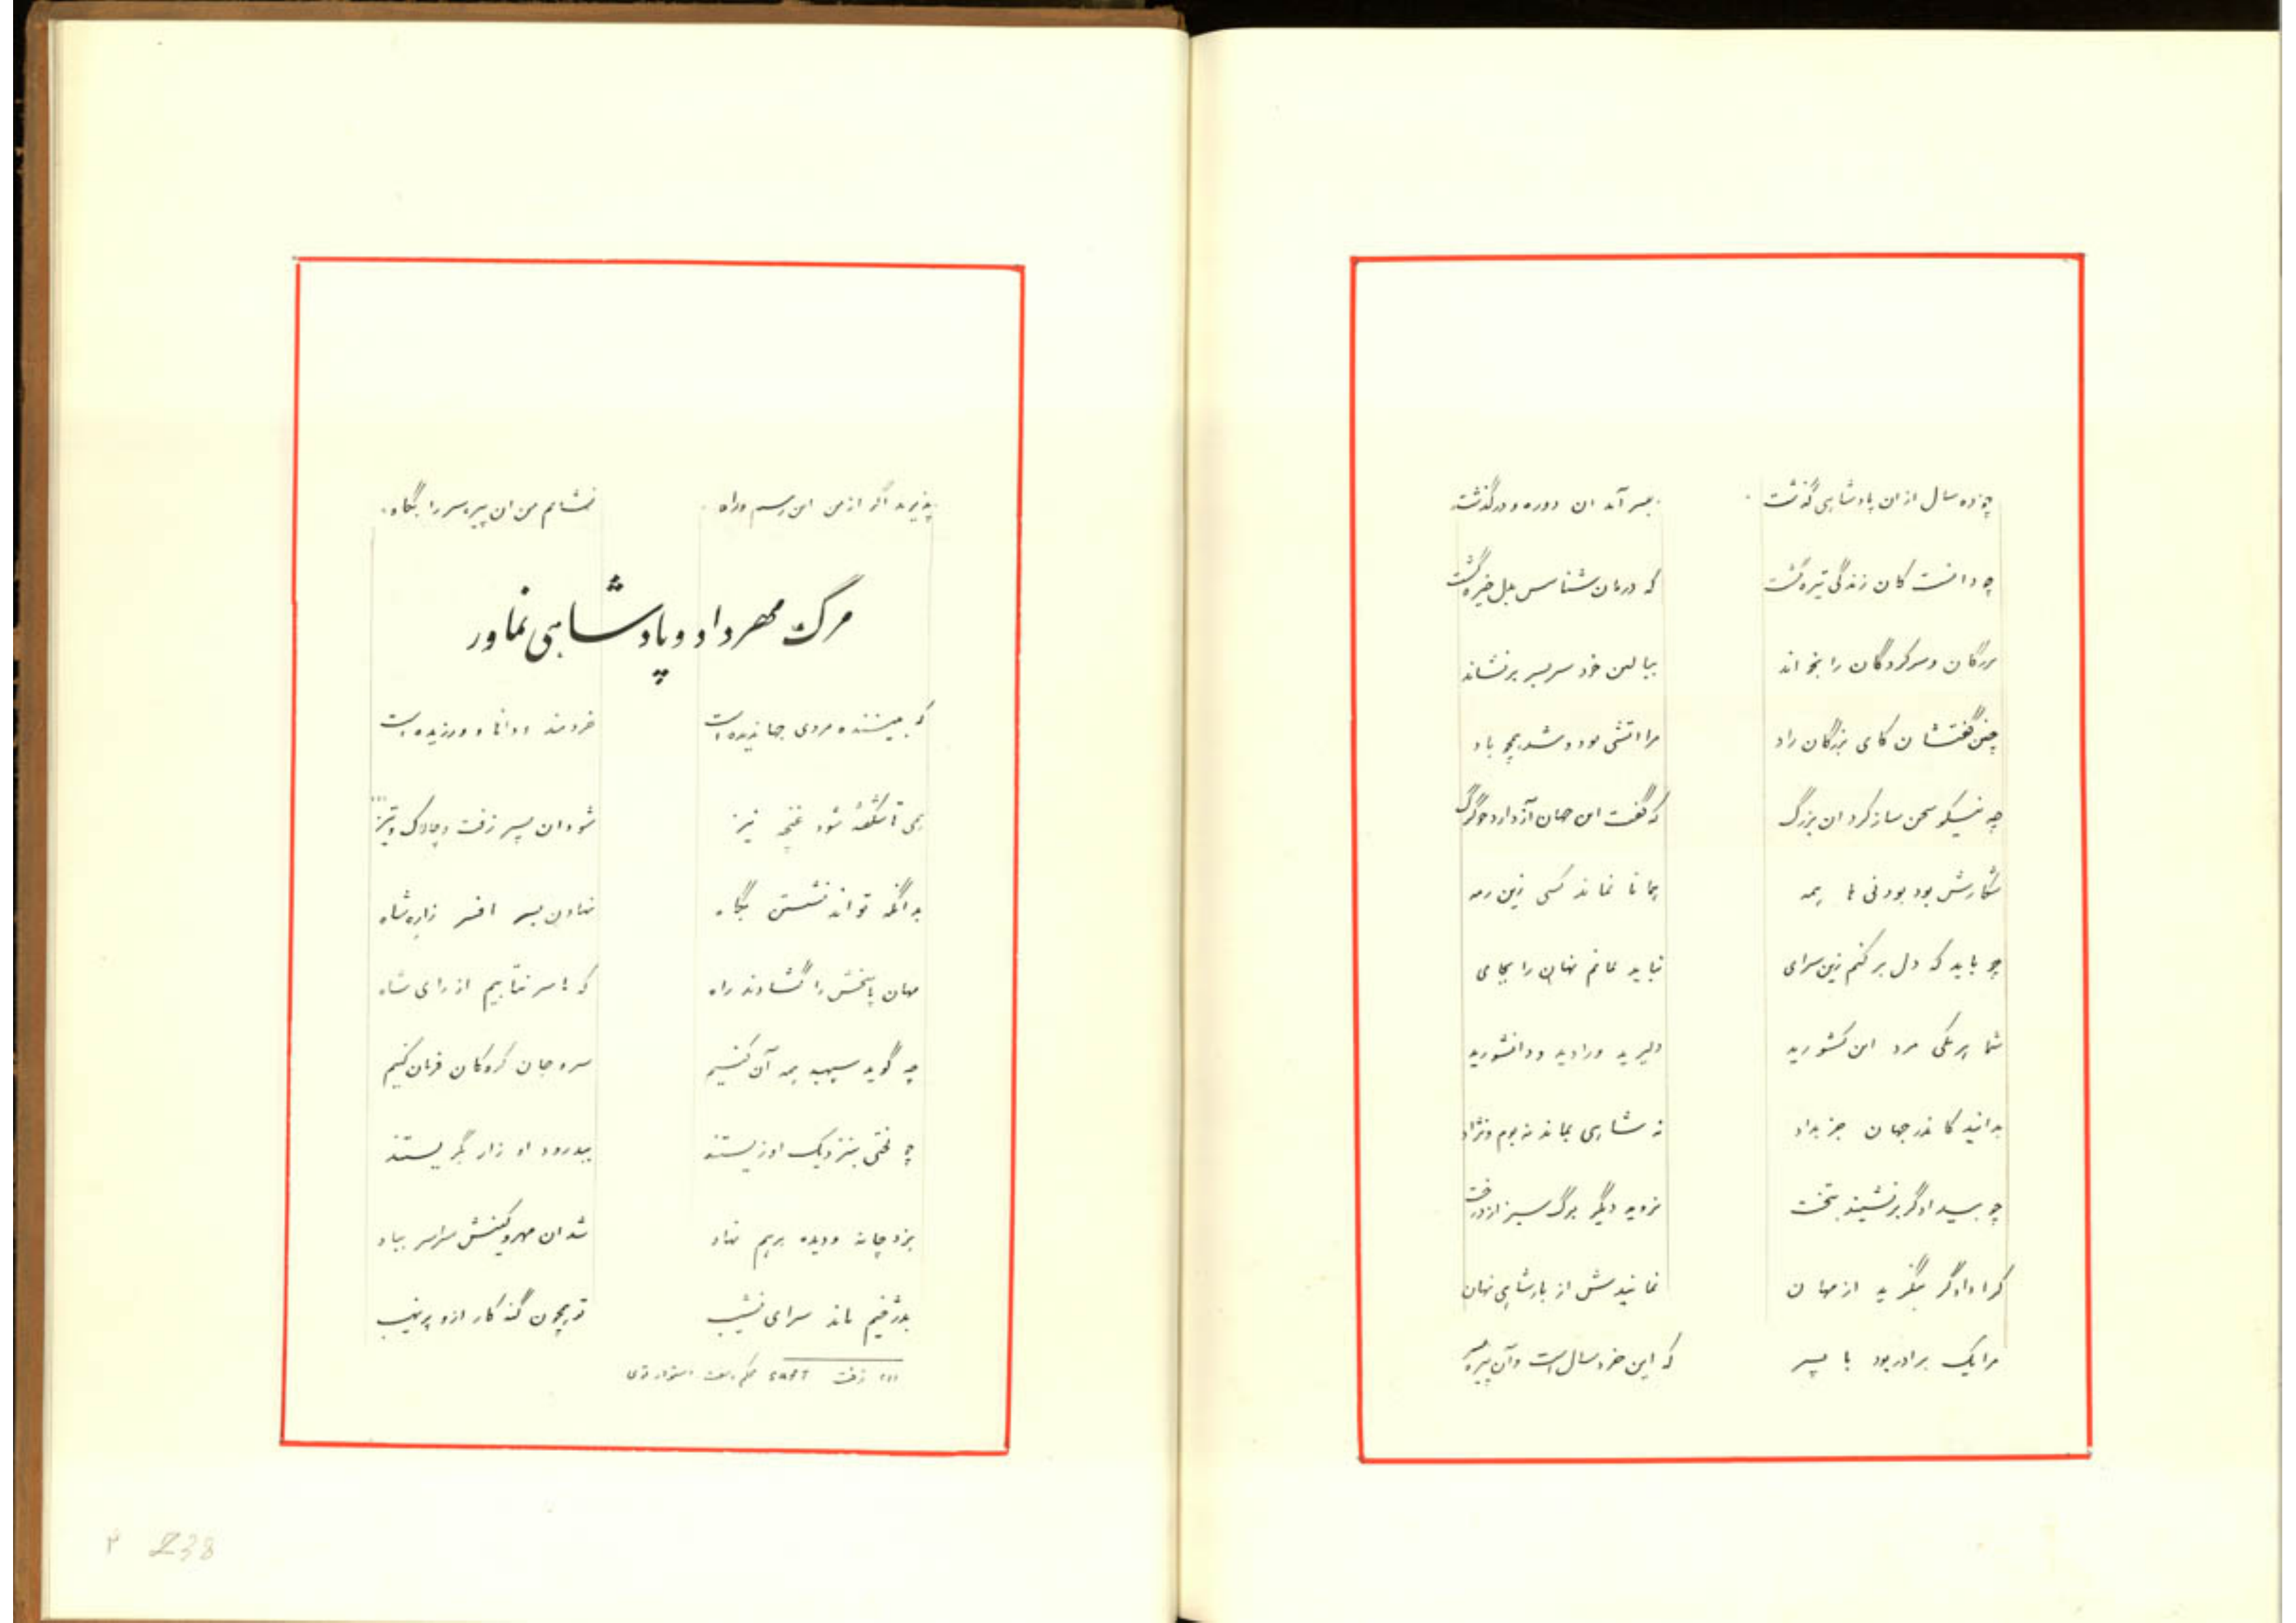 چو ده سال از ان پادشاهی گذشت بسر آمد ان دوره و درگذشت
چو دانست کان زندگی تیره گشت که درمان شناسش بدل خیره گشت
بزرگان و سرکردگان را بخواند ببالین خود سربسر برنشاند
چنین گفتشان کای بزرگان راد مرا اتشی بود و شد همچو باد
چه نیکو سخن ساز کرد ان بزرگ که گفت این جهان آز دارد چو گرگ
شکارش بود بودنی ها همه همانا نماند کسی زین رمه
چو باید که دل بر کنم زین سرای نباید نمانم نهان را بجای
شما هر یکی مرد این کشورید دلیرید و رادید و دانشورید
بدانید کاندر جهان جز بداد نه شاهی بماند نه بوم و نژاد
چو بیدادگر برنشیند بتخت نروید دیگر برگ سبز از درخت
کرا دادگر بنگرید از مهان نمانیدش از پادشاهی نهان
مرا یک برادر بود با پسر که این خردسال است و آن پیره سر
پذیرید اگر از من این رسم و راه نشانم من ان پیره سر را بگاه
مرگ مهرداد و پادشاهی نماور
که بیننده مردی جهاندیده است خردمند و دانا و ورزیده است
همی تا شکفته شود غنچه نیز شود ان پسر زفت و چالاک و تیز
بدانگه تواند نشستن بگاه نهادن بسر افسر زاره شاه
مهان پاسخش را گشادند راه که ما سر نتابیم از رای شاه
چه گوید سپهبد همه آن کنیم سر و جان گروگان فرمان کنیم
چو لختی بنزدیک او زیستند بپدرود او زار بگریستند
بزد چانه و دیده برهم نهاد شد ان مهر و کینش سراسر بباد
بدژخیم ماند سرای نشیب تو همچون گنه کار ازو پر نهیب
زفت
۳ 238